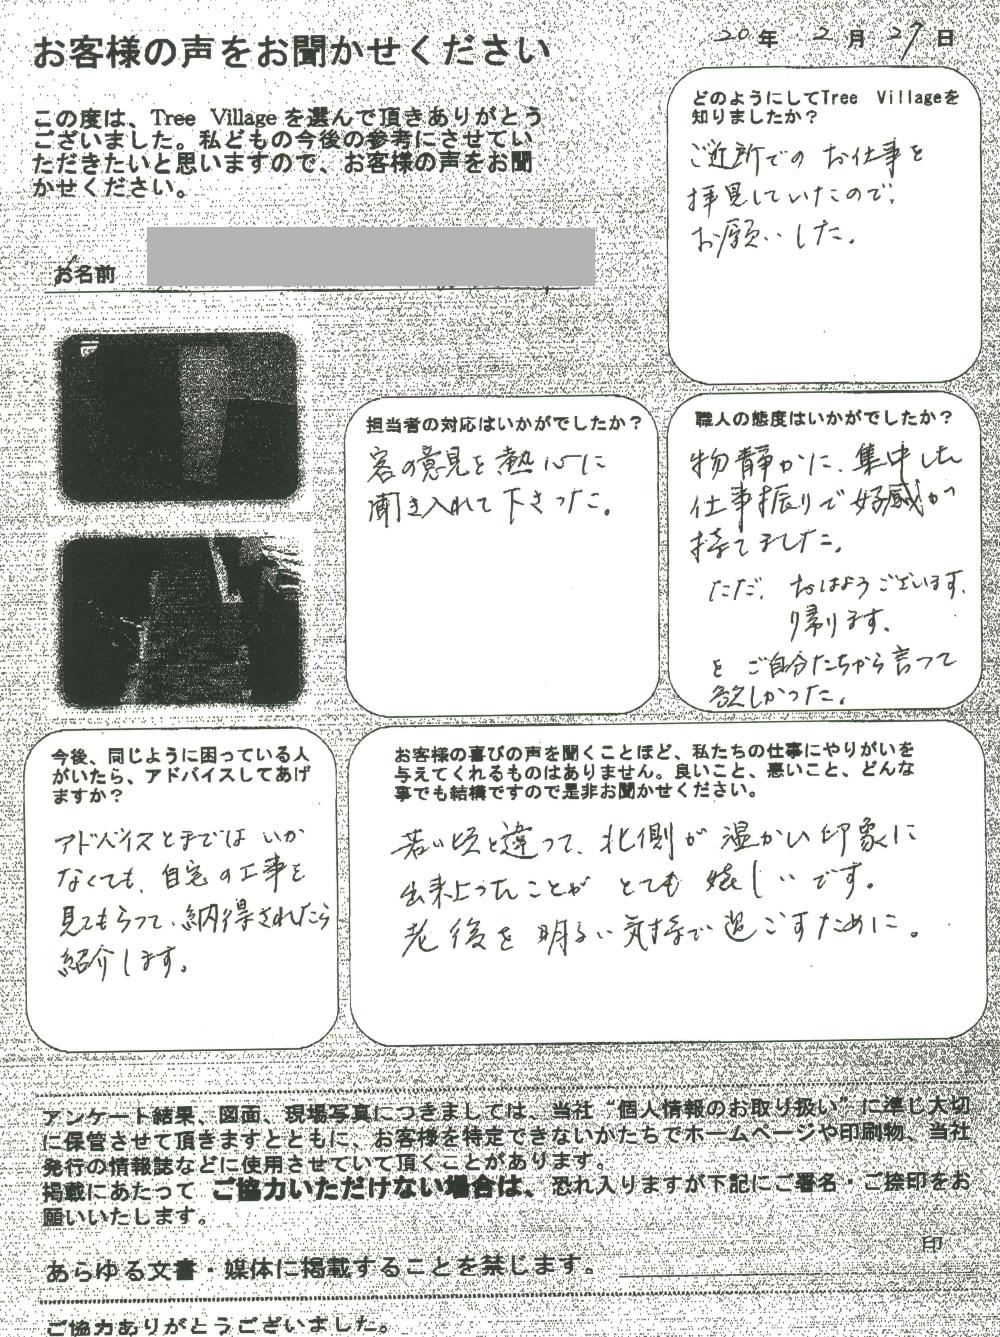 お客様の声をお聞かせください
20年 2月 27日
この度は、Tree Villageを選んで頂きありがとう
ございました。私どもの今後の参考にさせてい
ただきたいと思いますので、お客様の声をお聞
かせください。
お名前
どのようにしてTree Villageを
知りましたか？
ご近所でのお仕事を
拝見していたので、
お願いした。
担当者の対応はいかがでしたか？
客の意見を熱心に
聞き入れて下さった。
職人の態度はいかがでしたか？
物静かに、集中した
仕事振りで好感が
持てました。
ただ、おはようございます、
帰ります。
をご自分たちから言って
欲しかった。
今後、同じように困っている人
がいたら、アドバイスしてあげ
ますか？
アドバイスとまではいか
なくても、自宅の工事を
見てもらって、納得されたら
紹介します。
お客様の喜びの声を聞くことほど、私たちの仕事にやりがいを
与えてくれるものはありません。良いこと、悪いこと、どんな
事でも結構ですので是非お聞かせください。
若い頃と違って、北側が温かい印象に
出来上ったことがとても嬉しいです。
老後を明るい気持で過ごすために。
アンケート結果、図面、現場写真につきましては、当社“個人情報のお取り扱い”に準じ大切
に保管させて頂きますとともに、お客様を特定できないかたちでホームページや印刷物、当社
発行の情報誌などに使用させていて頂くことがあります。
掲載にあたって ご協力いただけない場合は、恐れ入りますが下記にご署名・ご捺印をお
願いいたします。
印
あらゆる文書・媒体に掲載することを禁じます。
ご協力ありがとうございました。